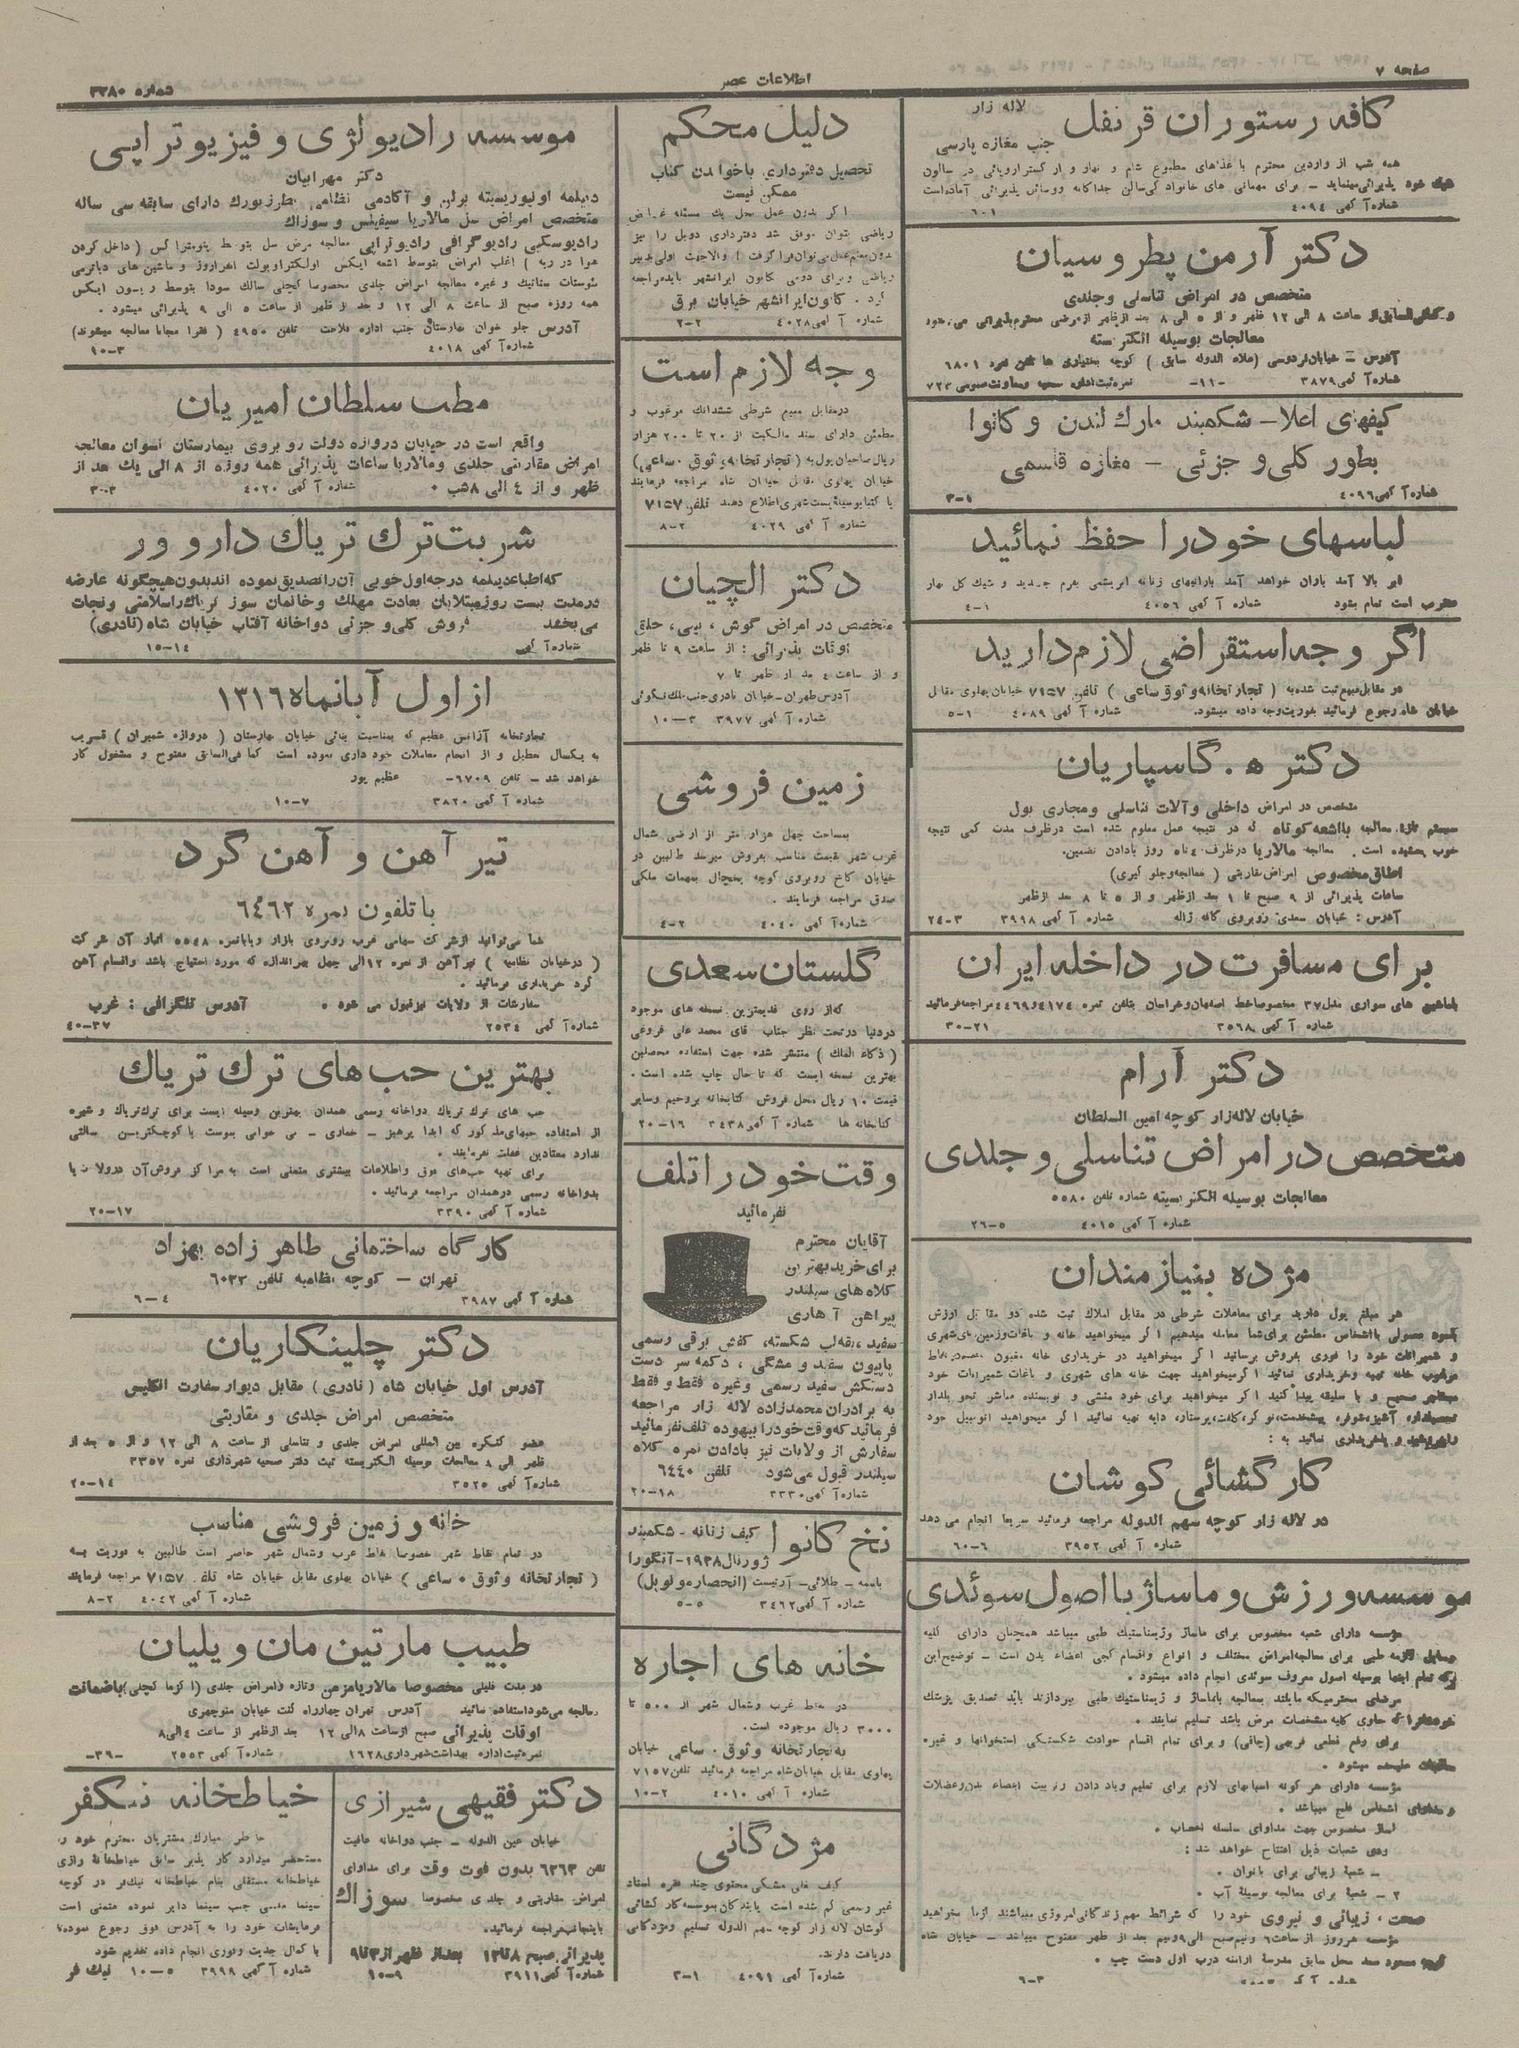 صفحه ۷
اطلاعات عصر
شماره ۳۳۸۰
کافه رستوران قرنفل
لاله زار
جنب مغازه پارسی
همه شب از واردین محترم با غذاهای مطبوع شام و نهار و ارکستر اروپائی در سالون
شیک خود پذیرائی مینماید – برای مهمانی های خانوادگی سالن جداگانه و وسائل پذیرائی آماده است
شماره آگهی ۴۰۹۴
۱-۶
دکتر آرمن پطروسیان
متخصص در امراض تناسلی و جلدی
کمافی‌السابق از ساعت ۸ الی ۱۲ ظهر و از ۵ الی ۸ بعد از ظهر از مرضی محترم پذیرائی می شود
معالجات بوسیله الکتریسته
آدرس – خیابان فردوسی (علاء الدوله سابق) کوچه بختیاری ها تلفن نمره ۶۸۰۱
شماره آگهی ۳۸۷۹
-۱۱-
نمره ثبت اداره صحیه و معاونت عمومی ۷۲۳
کیفهای اعلا – شکمبند مارك لندن و کانوا
بطور کلی و جزئی – مغازه قاسمی
شماره آگهی ۴۰۹۶
۳-۱
لباسهای خود را حفظ نمائید
ابر بالا آمد باران خواهد آمد بارانیهای زنانه ابریشمی بفرم جدید و شیك کل بهار
مقرب است تمام بشود
شماره آگهی ۴۰۵۶
۴-۱
اگر وجه استقراضی لازم دارید
در مقابل مبیع ثبت شده به ( تجارتخانه وثوق ساعی ) تلفن ۷۱۵۷ خیابان پهلوی مقابل
خیابان شاه رجوع فرمائید بفوریت وجه داده میشود.
شماره آگهی ۴۰۸۹
۵-۱
دکتر ه . گاسپاریان
متخصص در امراض داخلی و آلات تناسلی و مجاری بول
سیستم تازه معالجه با اشعه کوتاه که در نتیجه عمل معلوم شده است در ظرف مدت کمی نتیجه
خوب بخشیده است . معالجه مالاریا در ظرف ۴ تا ۵ روز با دادن تضمین.
اطاق مخصوص امراض مقاربتی ( معالجه و جلوگیری)
ساعات پذیرائی از ۹ صبح تا ۱ بعد از ظهر و از ۵ تا ۸ بعد از ظهر
آدرس : خیابان سعدی روبروی کافه ژاله
شماره آگهی ۳۹۹۸
۲۴-۳
برای مسافرت در داخله ایران
با ماشین های سواری مدل ۳۷ مخصوصا خط اصفهان و خراسان بتلفن نمره ۴۱۷۴ و ۴۴۶۹ مراجعه فرمائید
شماره آگهی ۳۵۶۸
۳۰-۲۱
دکتر آرام
خیابان لاله زار کوچه امین السلطان
متخصص در امراض تناسلی و جلدی
معالجات بوسیله الکتریسیته شماره تلفن ۵۵۸۰
شماره آگهی ۴۰۱۵
۲۶-۵
مژده بنیازمندان
هر مبلغ پول دارید برای معاملات شرطی در مقابل املاک ثبت شده دو مقابل ارزش
و شمیرانات خود را فوری بفروش برسانید اگر میخواهید در خریداری خانه
کارگشائی کوشان
در لاله زار کوچه سهم الدوله مراجعه فرمائید سریعا انجام می دهد
شماره آگهی ۳۹۵۲
۶۰-۶
موسسه ورزش و ماساژ با اصول سوئدی
مؤسسه دارای شعبه مخصوص برای ماساژ و ژیمناستیك طبی میباشد همچنان دارای کلیه
وسایل لازمه طبی برای معالجه امراض مختلف و انواع و اقسام کجی اعضاء بدن است – توضیح این
که تمام اینها بوسیله اصول معروف سوئدی انجام داده میشود.
مرضای محترمیکه مایلند بمعالجه با ماساژ و ژیمناستیك طبی بپردازند باید تصدیق پزشك
خود را که حاوی کلیه مشخصات مرض باشد تسلیم نمایند .
برای رفع قطعی فربهی (چاقی) و برای تمام اقسام حوادث شکستگی استخوانها و غیره
مؤسسه دارای هر گونه اسبابهای لازم برای تعلیم و یاد دادن و تربیت اعضاء بدن و عضلات
و مداوای اشخاص فلج میباشد .
ماساژ مخصوص جهت مداوای سلسله اعصاب .
شعبات ذیل افتتاح خواهد شد :
– شعبه زیبائی برای بانوان .
۲ – شعبه برای معالجه بوسیلهٔ آب .
صحت ، زیبائی و نیروی خود را که شرائط مهم زندگانی امروزی میباشند از ما بخواهید
مؤسسه هر روز از ساعت ۶ و نیم صبح الی ۹ و نیم بعد از ظهر مفتوح میباشد – خیابان شاه
کوچه مسعود سعد محل سابق مدرسهٔ ارامنه درب اول دست چپ .
۶-۳
دلیل محکم
تحصیل دفترداری باخواندن کتاب
ممکن نیست
اگر بدون عمل حل یك مسئله غامض
ریاضی بتوان موفق شد دفترداری دوبل را نیز
بدون معلم عملی میتوان فرا گرفت ( والا جهت اولی بدبیر
ریاضی و برای دومی کانون ایرانشهر باید مراجعه
کرد . کانون ایرانشهر خیابان برق
شماره آگهی ۴۰۲۸
۲-۲
وجه لازم است
در مقابل مبیع شرطی ششدانك مرغوب و
مطمئن دارای سند مالکیت از ۲۰ تا ۲۰۰ هزار
ریال صاحبان پول به ( تجارتخانه وثوق . ساعی)
خیابان پهلوی مقابل خیابان شاه مراجعه فرمایند
یا کتبا بوسیله پست شهری اطلاع دهند تلفن ۷۱۵۷
شماره آگهی ۴۰۲۹
۸-۲
دکتر الچیان
متخصص در امراض گوش ، بینی ، حلق
اوقات پذیرائی : از ساعت ۹ تا ظهر
و از ساعت ۴ بعد از ظهر تا ۷
آدرس طهران – خیابان نادری جنب بانك نگوئی
شماره آگهی ۳۹۷۷
۱۰-۳
زمین فروشی
بمساحت چهل هزار متر از اراضی شمال
غرب شهر بقیمت مناسب بفروش میرسد طالبین در
خیابان کاخ روبروی کوچه یخچال بمهمات ملکی
صدق مراجعه فرمایند .
شماره آگهی ۴۰۴۰
۴-۲
گلستان سعدی
که از روی قدیمترین نسخه های موجود
در دنیا در تحت نظر جناب آقای محمد علی فروغی
( ذکاء الملك ) منتشر شده جهت استفاده محصلین
بهترین نسخه ایست که تا حال چاپ شده است .
قیمت ۱۰ ریال محل فروش کتابخانه بروخیم و سایر
کتابخانه ها
شماره آگهی ۳۴۳۸
۲۰-۱۶
وقت خود را تلف
نفرمائید
آقایان محترم
برای خرید بهترین
کلاه های سیلندر
پیراهن آهاری
سفید ، یقه لب شکسته، کفش برقی رسمی
پاپیون سفید و مشکی ، دکمه سر دست
دستکش سفید رسمی و غیره فقط و فقط
به برادران محمدزاده لاله زار مراجعه
فرمائید که وقت خود را بیهوده تلف نفرمائید
سفارش از ولایات نیز با دادن نمره کلاه
سیلندر قبول می شود تلفن ۶۴۴۰
شماره آگهی ۳۳۳۰
۲۰-۱۸
نخ کانوا
کیف زنانه - شکمبند
ژورنال ۱۹۳۸ - آنگورا
باسمه – طلائی – آرتیست (انحصار مولوبل)
شماره آگهی ۳۴۶۲
۵-۵
خانه های اجاره
در نقاط غرب و شمال شهر از ۵۰۰ تا
۳۰۰۰ ریال موجوده است.
به تجارتخانه وثوق . ساعی خیابان
پهلوی مقابل خیابان شاه مراجعه فرمائید تلفن ۷۱۵۷
شماره آگهی ۴۰۱۰
۱۰-۲
مژدگانی
کیف بغلی مشکی محتوی چند فقره اسناد
غیر رسمی گم شده است یابندگان بموسسه کارگشائی
کوشان لاله زار کوچه سهم الدوله تسلیم و مژدگانی
دریافت دارند.
شماره آگهی ۴۰۹۱
۳-۱
موسسه رادیولژی و فیزیوتراپی
دکتر مهرابیان
دیپلمه اونیورسیته برلن و آکادمی نظامی پطرزبورك دارای سابقه سی ساله
متخصص امراض سل مالاریا سیفیلیس و سوزاك
رادیوسکپی رادیوگرافی رادیوتراپی معالجه مرض سل بتوسط پنومتراکس ( داخل کردن
هوا در ریه ) اغلب امراض بتوسط اشعه ایکس اولتراویولت انفراروژ و ماشین های دیاترمی
پنوستات ستاتیك و غیره معالجه امراض جلدی مخصوصا کچلی سالك سودا بتوسط ریون ایکس
همه روزه صبح از ساعت ۸ الی ۱۲ و بعد از ظهر از ساعت ۵ الی ۹ پذیرائی میشود .
آدرس جلو خوان بهارستان جنب اداره فلاحت تلفن ۴۹۵۰ ( فقرا مجانا معالجه میشوند)
شماره آگهی ۴۰۱۸
۱۰-۳
مطب سلطان امیریان
واقع است در خیابان دروازه دولت روبروی بیمارستان نسوان معالجه
امراض مقاربتی جلدی و مالاریا ساعات پذیرائی همه روزه از ۸ الی یك بعد از
ظهر و از ۴ الی ۸ شب .
شماره آگهی ۴۰۲۰
۳-۳
شربت ترك تریاك داروور
که اطباء دیپلمه درجه اول خوبی آن را تصدیق نموده اند بدون هیچگونه عارضه
در مدت بیست روز مبتلایان بعادت مهلك و خانمان سوز تریاك را سلامتی و نجات
می بخشد
فروش کلی و جزئی دواخانه آفتاب خیابان شاه (نادری)
شماره آگهی
۱۵-۱۴
از اول آبانماه ۱۳۱۶
تجارتخانه آژانس عظیم که بمناسبت بنائی خیابان بهارستان ( دروازه شمیران ) قریب
به یکسال تعطیل و از انجام معاملات خود داری نموده است کما فی السابق مفتوح و مشغول کار
خواهد شد – تلفن ۶۷۰۹-
عظیم پور
شماره آگهی ۳۸۲۰
۱۰-۷
تیر آهن و آهن گرد
با تلفون نمره ۶۴۶۲
شما می توانید از شرکت سهامی غرب روبروی بازار و یا با نمره ۵۵۴۸ انبار آن شرکت
( در خیابان نظامیه ) تیر آهن از نمره ۱۲ الی چهل بهر اندازه که مورد احتیاج باشد و اقسام آهن
گرد خریداری فرمائید .
سفارشات از ولایات نیز قبول می شود .
آدرس تلگرافی : غرب
شماره آگهی ۲۵۳۴
۴۰-۳۷
بهترین حب های ترك تریاك
حب های ترك تریاك دواخانه رسمی همدان بهترین وسیله ایست برای ترك تریاك و شیره
از استفاده حبهای مذکور که ابدا پرهیز – خماری – بی خوابی یبوست یا کوچکترین کسالتی
ندارد معتادین غفلت نفرمایند .
برای تهیه حب های فوق و اطلاعات بیشتری متمنی است به مراکز فروش آن در ولایات یا
بدواخانه رسمی در همدان مراجعه فرمائید .
شماره آگهی ۳۳۹۰
۲۰-۱۷
کارگاه ساختمانی طاهرزاده بهزاد
تهران – کوچه نظامیه تلفن ۶۰۳۳
شماره آگهی ۳۹۸۷
۶-۴
دکتر چلینگاریان
آدرس اول خیابان شاه (نادری) مقابل دیوار سفارت انگلیس
متخصص امراض جلدی و مقاربتی
عضو کنگره بین المللی امراض جلدی و تناسلی از ساعت ۸ الی ۱۲ و از ۵ بعد از
ظهر الی ۸ معالجات بوسیله الکتریسته ثبت دفتر صحیه شهرداری نمره ۳۳۵۷
شماره آگهی ۳۵۲۵
۲۰-۱۴
خانه و زمین فروشی مناسب
در تمام نقاط شهر خصوصا نقاط غرب و شمال شهر حاضر است طالبین به فوریت به
( تجارتخانه وثوق . ساعی ) خیابان پهلوی مقابل خیابان شاه تلفن ۷۱۵۷ مراجعه فرمایند
شماره آگهی ۴۰۴۲
۸-۲
طبیب مارتین مان ویلیان
در مدت قلیلی مخصوصا مالاریا مزمن و تازه و امراض جلدی (اکزما کچلی) با ضمانت
معالجه می شود استفاده نمائید
آدرس تهران چهارراه کنت خیابان منوچهری
اوقات پذیرائی صبح از ساعت ۸ الی ۱۲ بعد از ظهر از ساعت ۴ الی ۸
نمره ثبت اداره بهداشت شهرداری ۱۶۲۸
شماره آگهی ۲۵۵۳
-۳۹-
دکتر فقیهی شیرازی
خیابان عین الدوله – جنب دواخانه عافیت
تلفن ۶۳۶۳ بدون فوت وقت برای مداوای
امراض مقاربتی و جلدی مخصوصا سوزاك
باینجانب مراجعه فرمائید.
پذیرائی صبح ۸ تا ۱۲ بعد از ظهر از ۳ تا ۹
شماره آگهی ۳۹۱۱
۱۰-۹
خیاطخانه نیکفر
خاطر مبارك مشتریان محترم خود را
مستحضر میدارد کار پذیر سابق خیاطخانهٔ رازی
خیاطخانه مستقلی بنام خیاطخانه نیك فر در کوچه
سینما جنب سینما دایر نموده متمنی است
فرمایشات خود را به آدرس فوق رجوع نموده تا
با کمال جدیت و فوری انجام داده تقدیم شود
شماره آگهی ۳۹۹۹
۱۰-۵
نیك فر